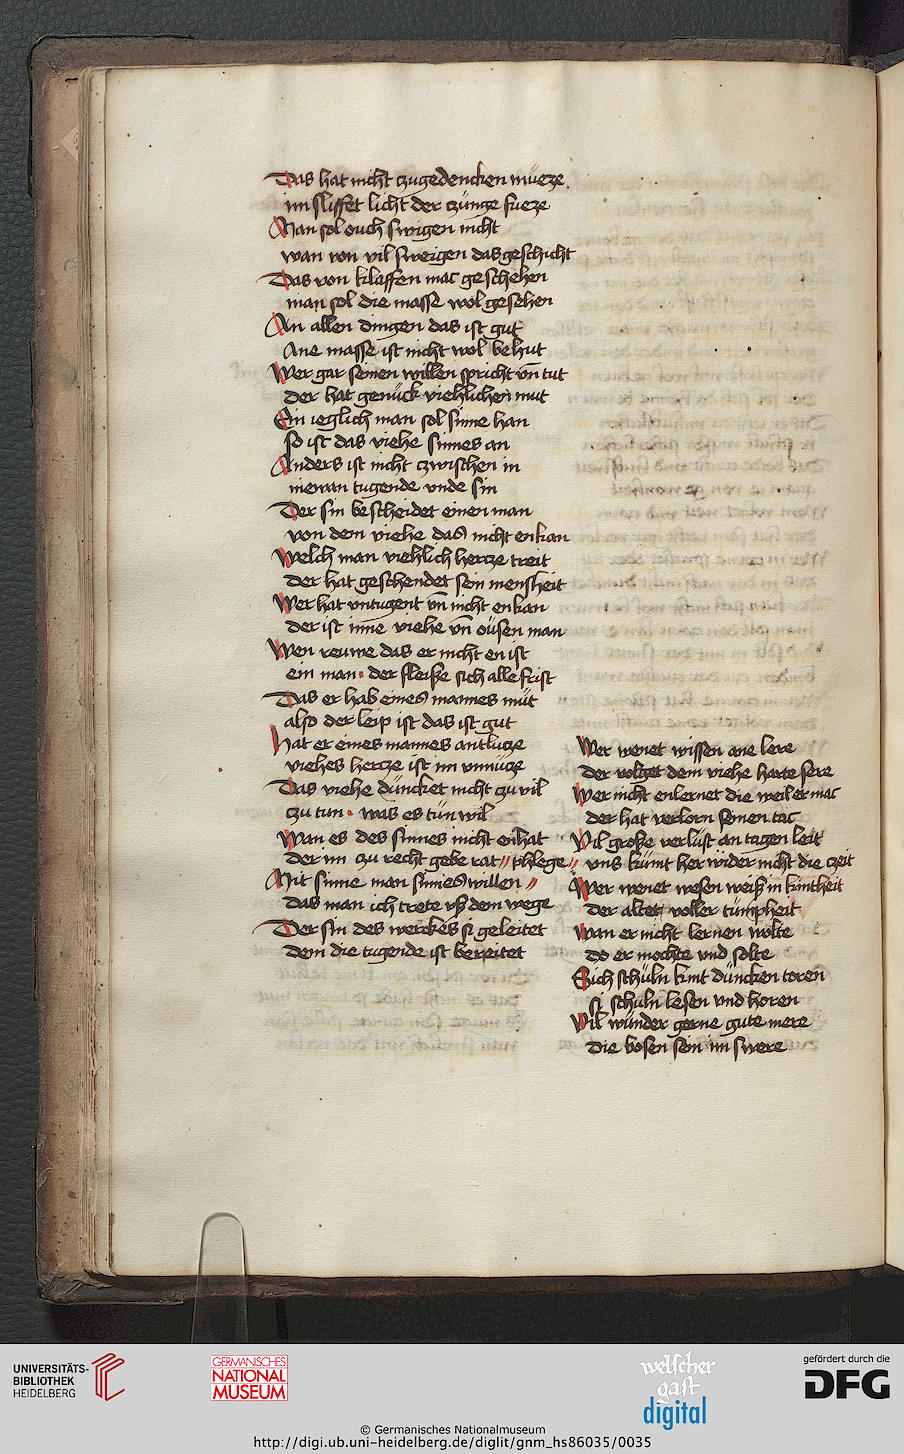 Das hat nicht czugedencken müeze
im sliffet licht der czünge fueze
Man sol ouch swigen nicht
wan von vil sweigen das geschicht
Das von klaffen mac geschehen
man sol die masse wol gesehen
An allen dingen das ist gut
Ane masse ist nicht wol behut
Wer gar seinen willen spricht vn̄ tut
der hat genück viehlichen mut
Ein ieglich man sol sinne han
so ist das viehe sinnes an
Anders ist nicht czwischen in
niewan tugende vnde sin
Der sin bescheidet einen man
von dem viehe das nicht enkan
Welch man viehlich hercze treit
der hat geschendet sein mensheit
Wer hat vntugent vn̄ nicht enkan
der ist inne viehe vn̄ oüsen man
Wen reuwe das er nicht en ist
ein man · der fleiße sich alle frist
Das er hab eines mannes müt
also der leip ist das ist gut
Hat er eines mannes antlucze
viehes hercze ist im vnnücze
Das viehe düncket nicht zu vil
zu tun · was es tün wil
Wan es des sinnes nicht enhat
der im zu recht gebe rat // phlege //
Mit sinne man sinnes willen //
das man ich trete vß dem wege
Der sin des werckes si geleitet
dem die tugende ist bereitet
Wer wenet wissen ane lere
der volget dem viehe harte sere
Wer nicht enlernet die weil er mac
der hat verlorn seinen tac
Vil große verlüst an tagen leit
vns kümt her wider nicht die czeit
Wer wenet wesen weiß in kintheit
der altet voller tümpheit
Wan er nicht lernen wolte
do er mochte vnd solte
Sich schüln kint düncken toren
si schuln lesen vnd horen
Vil wünder gerne gute mere
die bosen sein im swere
UNIVERSITÄTS-
BIBLIOTHEK
HEIDELBERG
GERMANISCHES
NATIONAL
MUSEUM
welscher
gast
digital
gefördert durch die
DFG
© Germanisches Nationalmuseum
http://digi.ub.uni-heidelberg.de/diglit/gnm_hs86035/0035